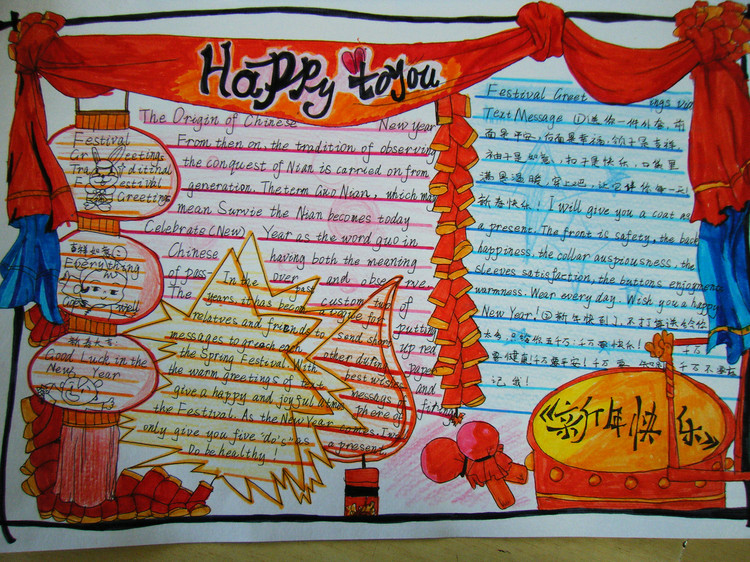 Happy to you
Festival
Greetings
Traditional
Festival
Greetings
吉祥如意
Everything
goes well
新春大吉
Good Luck in the
New Year
The Origin of Chinese New year
From then on, the tradition of observing
the conquest of Nian is carried on from
generation. The term Guo Nian, which may
mean Survie the Nian becomes today
Celebrate (New) Year as the word guo in
Chinese having both the meaning
of pass over and observe.
The custom of
putting
up red
paper
and
In the past
years, it has become a
relatives and friends to send short
messages to greet each other during
the Spring Festival. With best wishes
the warm greetings of
give a happy and joyful atmosphere of
the Festival. As the New Year comes, I've
only give you five "do's" as a present.
Do be healthy!
Festival Greet ings via
Text Message ①送你一件外套,前
面是平安,后面是幸福,领子是吉祥
袖子是如意,扣子是快乐,口袋里
满是温暖,穿上吧,让它伴你每一天!
新春快乐 I will give you a coat as
a present. The front is safety, the back
happiness, the collar auspiciousness, the
sleeves satisfaction, the buttons enjoyment
warmness. Wear every day. Wish you a happy
New Year! ②新年快到了,不打算送给你
太多,只给你五千万:千万要快乐!千万
要健康!千万要平安!千万要 千万不要忘
记我!
《新年快乐》